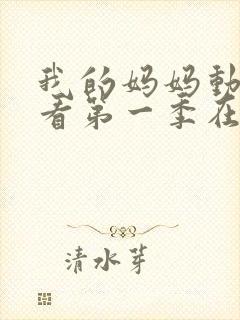 我的妈妈動
看第一季在
清水芽